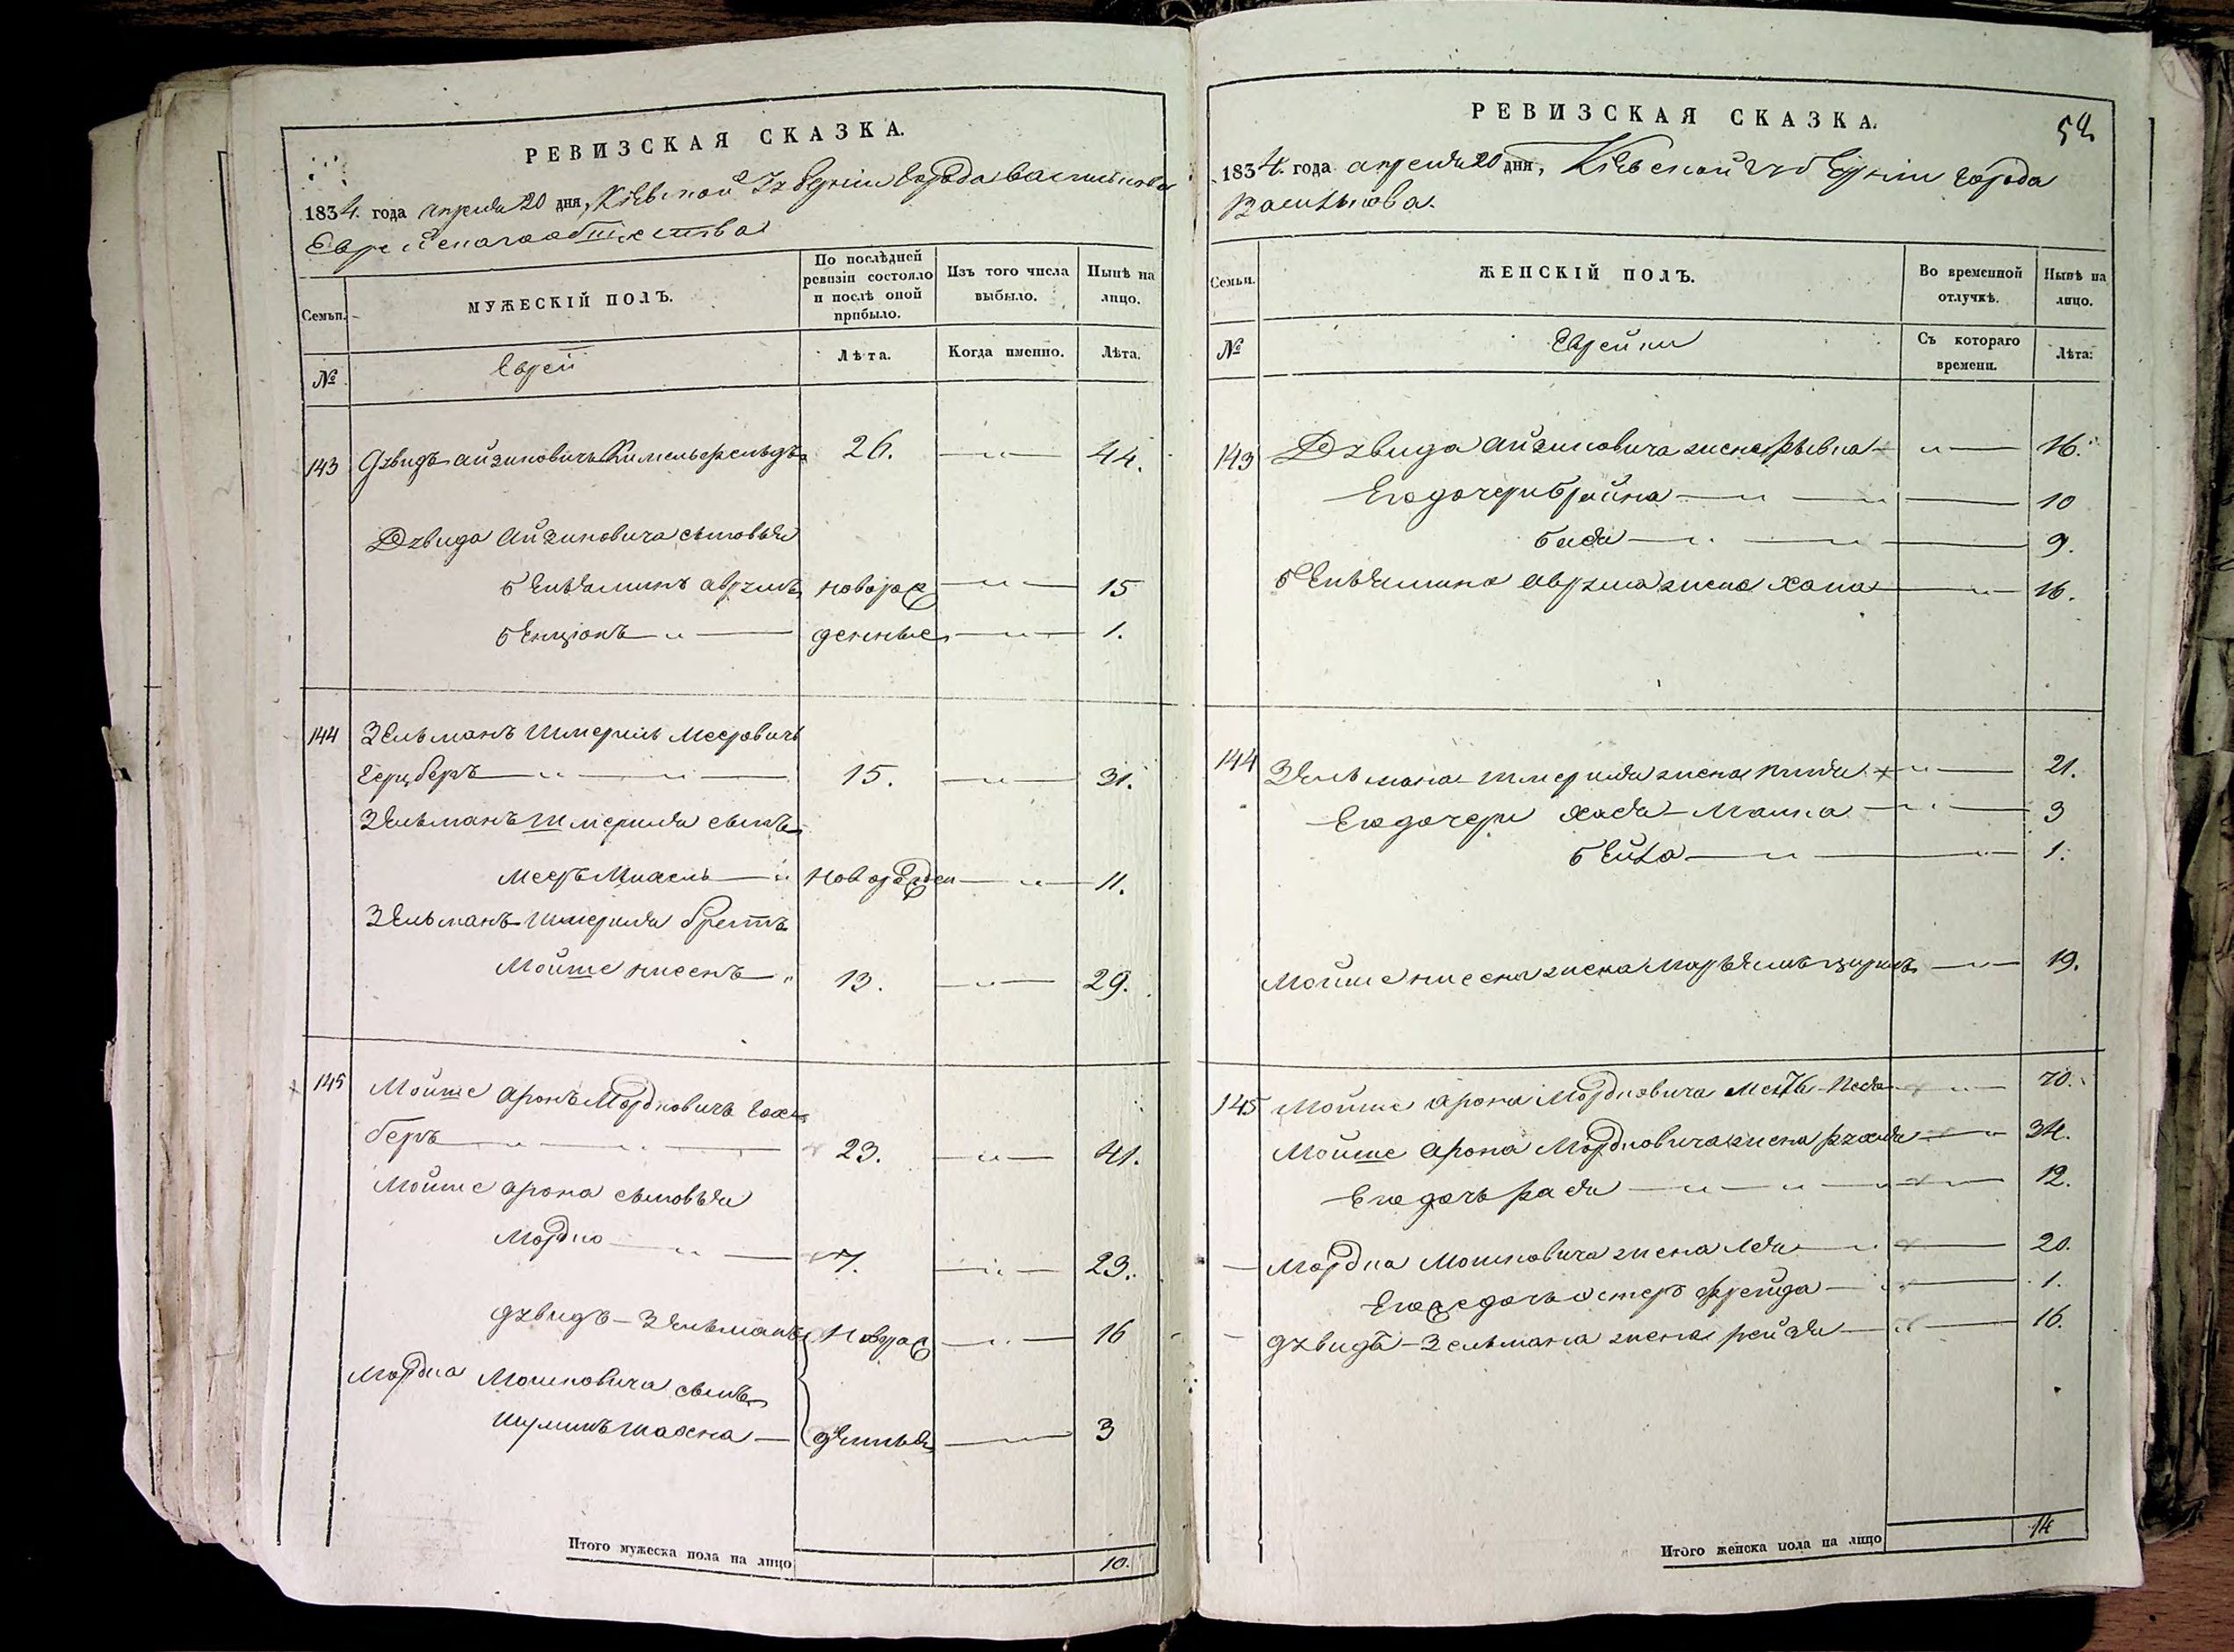 РЕВИЗСКАЯ СКАЗКА.
1834. года апреля 20 дня, Кіевской Губерніи Города Василькова
Еврейскаго общества
Семьи.
МУЖЕСКІЙ ПОЛЪ.
По послѣдней ревизіи состояло и послѣ оной прибыло.
Изъ того числа выбыло.
Нынѣ на лицо.
№
Евреи
Лѣта.
Когда именно.
Лѣта.
143 Давидъ Айзиковичъ 26. — 44.
Давида Айзиковича сыновья
Беньяминъ Аврумъ новорож — 15
Бенціонъ — денные — 1.
144 Зельманъ Шмериль Мееровичъ
Герцберъ — 15. — 31.
Зельманъ Шмериля сынъ
Мееръ Михель — новорожден — 11.
Зельманъ Шмериля братъ
Мойше Нисенъ — 13. — 29.
145 Мойше Аронъ Мордковичъ
беръ — 23. — 41.
Мойше Арона сыновья
Мордко — 7. — 23.
Давидъ-Зельманъ Новорож — 16
Мордка Мошковича сынъ
Шулимъ Шахна — денные — 3
Итого мужеска пола на лицо 10.
РЕВИЗСКАЯ СКАЗКА.
54
1834. года апреля 20 дня, Кіевской Губерніи Города
Василькова.
Семьи.
ЖЕНСКІЙ ПОЛЪ.
Во временной отлучкѣ.
Нынѣ на лицо.
№
Еврейки
Съ котораго времени.
Лѣта:
143 Давида Айзиковича жена Рывка — 36.
Его дочери Брайна — 10
Бася — 9.
Беньямина Аврума жена Хана — 16.
144 Зельмана Шмериля жена — 21.
Его дочери Хая-Малка — 3
Бейла — 1.
Мойше Нисена жена Марьемъ — 19.
145 Мойше Арона Мордковича Мать Песя — 70.
Мойше Арона Мордковича жена Рахля — 34.
Его дочь Рася — 12.
Мордка Мошковича жена Лея — 20.
Его же дочь Эстеръ Фрейда — 1.
Давидъ-Зельмана жена Рейзя — 16.
Итого женска пола на лицо 14